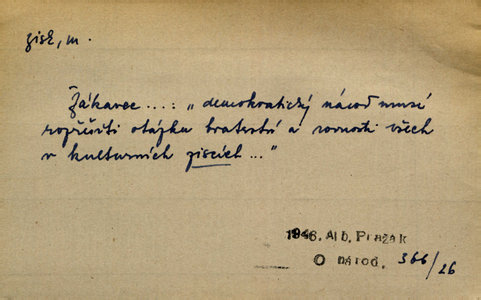 zisk, m.
Žákavec ...: „demokratický národ musí
rozřešiti otázku bratrství a rovnosti všech
v kulturních ziscích ..."
1946. Alb. Pražák
O národ. 366/26